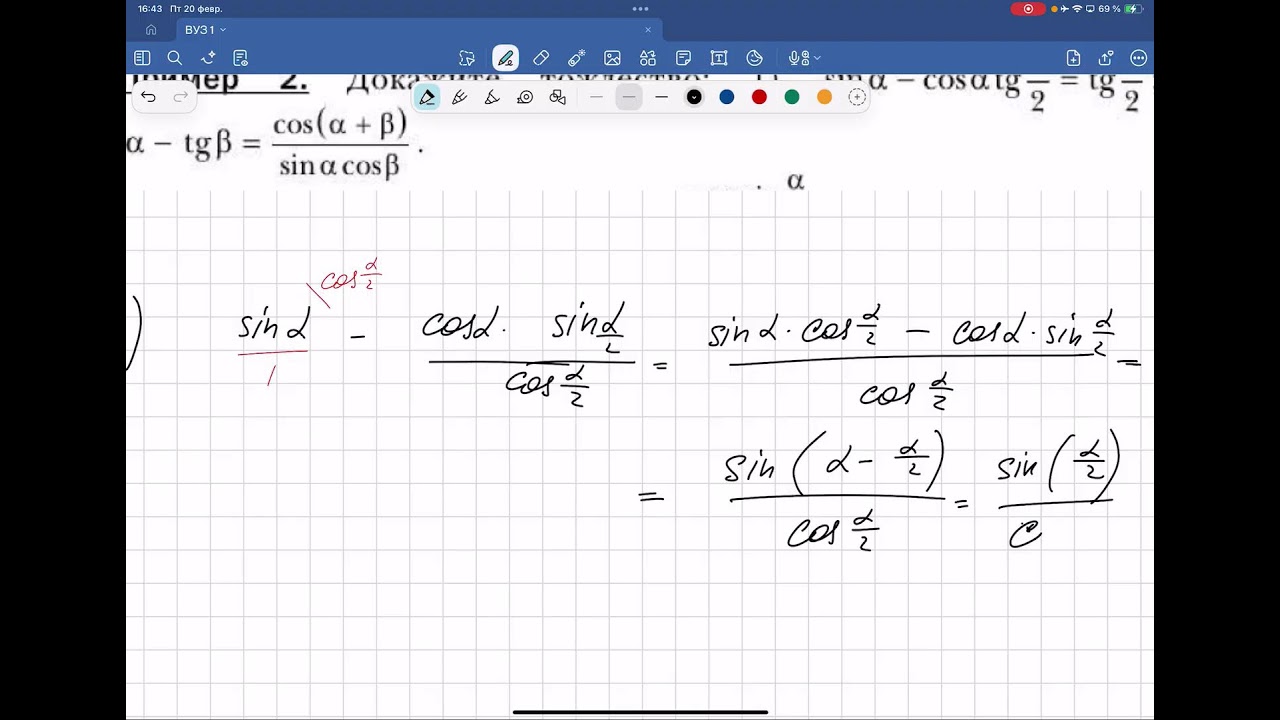 16:43 Пт 20 февр. 69 %
ВУЗ 1
Пример 2. Докажите тождество: 1) sin α − cos α tg α/2 = tg α/2
α − tg β = cos(α + β) / sin α cos β .
α
cos α/2
) sin α / 1 − cos α · sin α/2 / cos α/2 = sin α · cos α/2 − cos α · sin α/2 / cos α/2 =
= sin (α − α/2) / cos α/2 = sin (α/2) / c